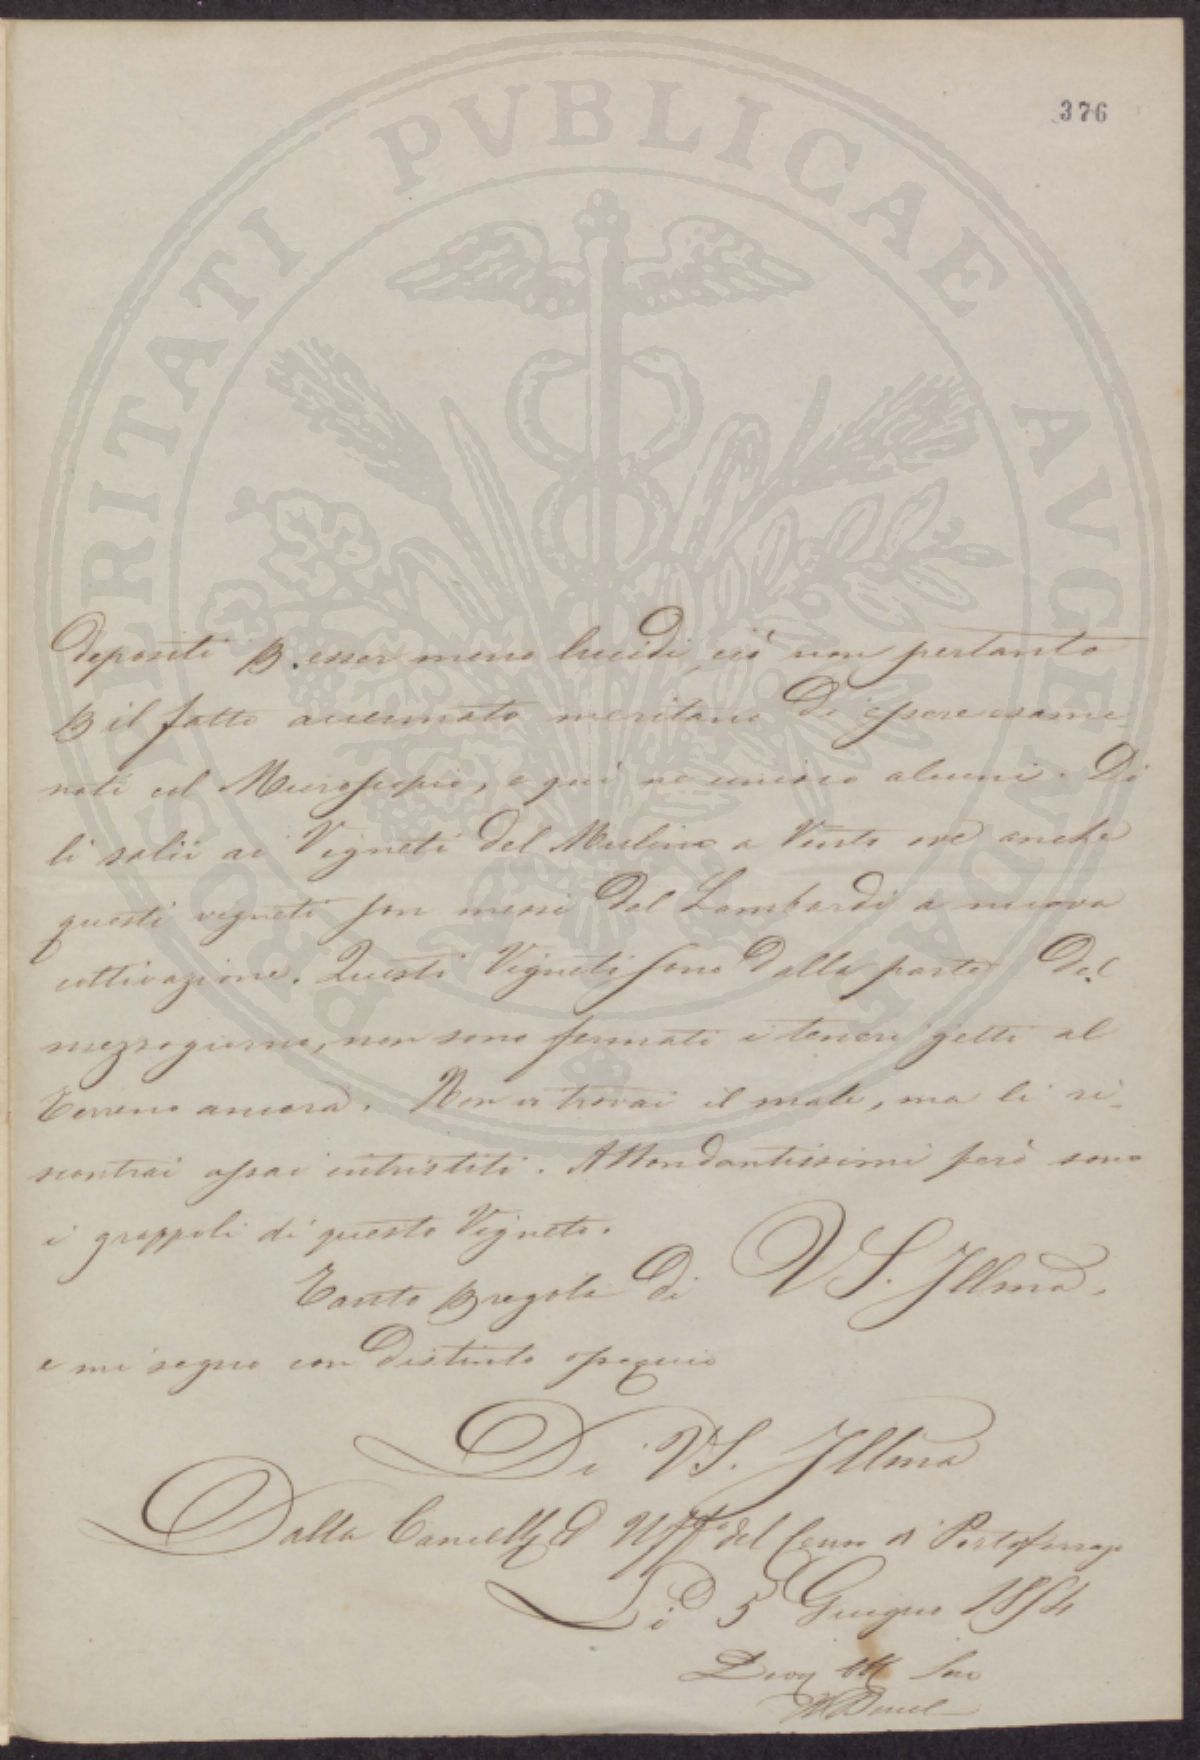 376
PROSPERITATI PVBLICAE AVGENDAE
depositi p. esser meno lucidi, ciò non pertanto
p il fatto accennato meritano di essere esami
nati col Microscopio, e qui ne unisco alcuni. Di
lì salii ai Vigneti del Mulino a Vento ove anche
questi vigneti son messi dal Lombardi a nuova
coltivazione. Questi Vigneti sono dalla parte del
mezzogiorno, non sono fermati i teneri getti al
terreno ancora. Non vi trovai il male, ma li ri-
scontrai assai intristiti. Abbondantissimi però sono
i grappoli di questo Vigneto.
Tanto p regola di VS. Illma.
e mi segno con distinto ossequio
Di VS. Illma
Dalla Cancell d Uff del Censo di Portoferrajo
Li 5 Giugno 1854
Devo Obb Ser